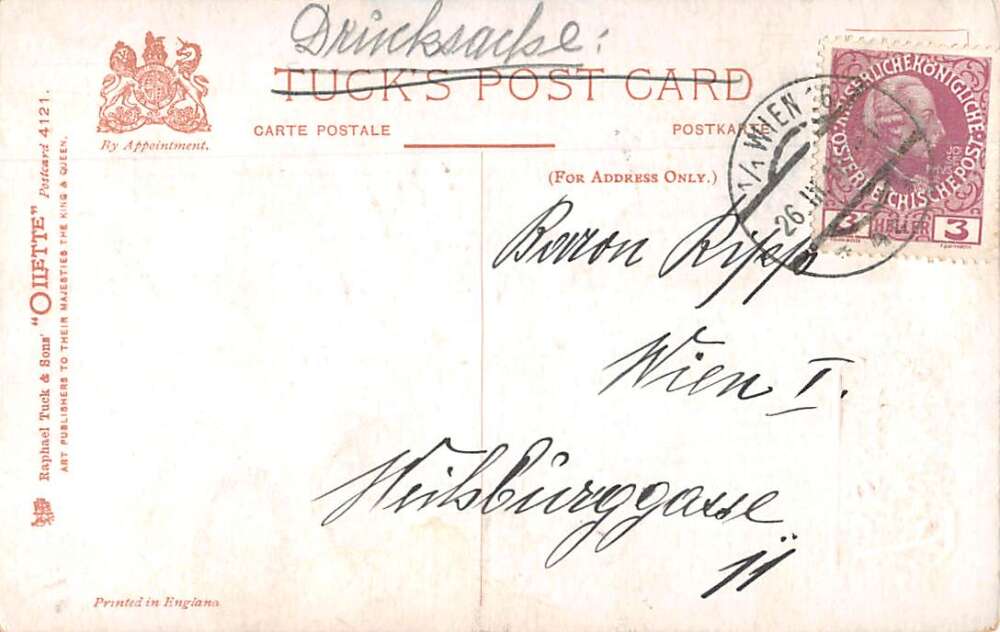 Drucksache:
TUCK'S POST CARD
CARTE POSTALE
POSTKARTE
By Appointment.
(FOR ADDRESS ONLY.)
Raphael Tuck & Sons' "OILETTE" Postcard 4121.
ART PUBLISHERS TO THEIR MAJESTIES THE KING & QUEEN.
WIEN
26 III
KAISERLICHE KÖNIGLICHE
OESTERREICHISCHE POST
3 HELLER 3
Baron Ripp
Wien I.
Weihburggasse
11
Printed in England